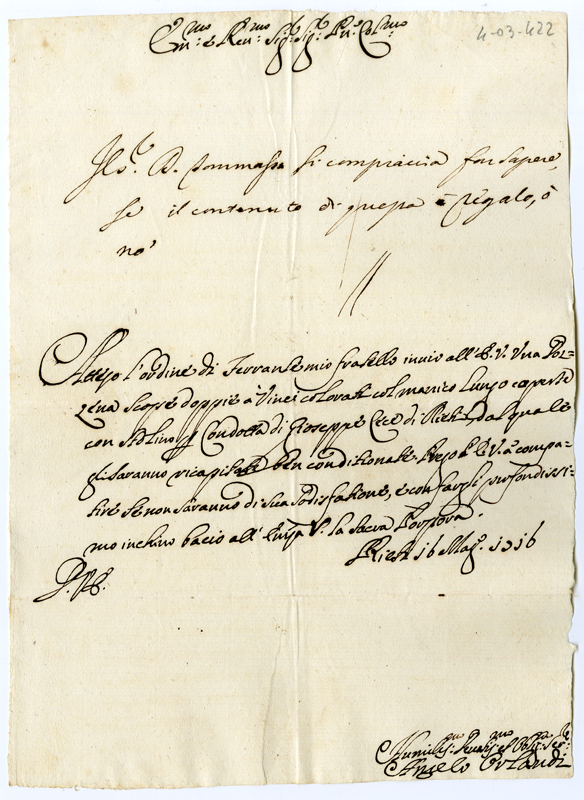 4-03-422
Em:mo e Rev:mo Sig:r Sig:r Pn'e Col:mo
Il Sr. D. Tommaso si compiaccia far sapere,
se il contenuto di questa è regalo, ò
nò
Atteso l'ordine di Ferrante mio fratello invio all'E.V. Una Doz=
zena Scope doppie à Vinci colorate col manico lungo coperte
con Condotta di Gioseppe Cece di Rieti, dal quale
gli saranno ricapitate ben conditionate. Prego l'E.V. à compa=
tire se non saranno di sua sodisfatione, e con fargli profondissi=
mo inchino bacio all'Em.za V. la Sacra Porpora.
Rieti 16 Mag. 1716
Humiliss:mo Devotiss:mo et Oblig:mo Ser:re
Angelo Orlandi